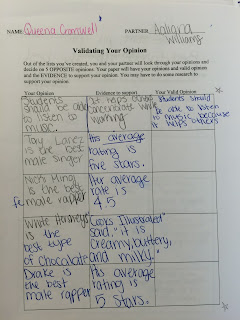 NAME: Queena Cromwell PARTNER Aaliyana Williams
Validating Your Opinion
Out of the lists you've created, you and your partner will look through your opinions and
decide on 5 OPPOSITE opinions. Your paper will have your opinions and valid opinions
and the EVIDENCE to support your opinion. You may have to do some research to
support your opinion.
Your Opinion Evidence to support Your Valid Opinion
Students should be able to listen to music.
It helps others while working
Students should be able to listen to music because it helps others
Tory Lanez is the best male singer
His average rating is five stars.
Nicki Minaj is the best female rapper
Her average rate is 4.5
White Hersheys is the best type of chocolate
Cooks Illustrated said, "it is creamy, buttery, and milky."
Drake is the best male rapper
His average rating is 5 stars.